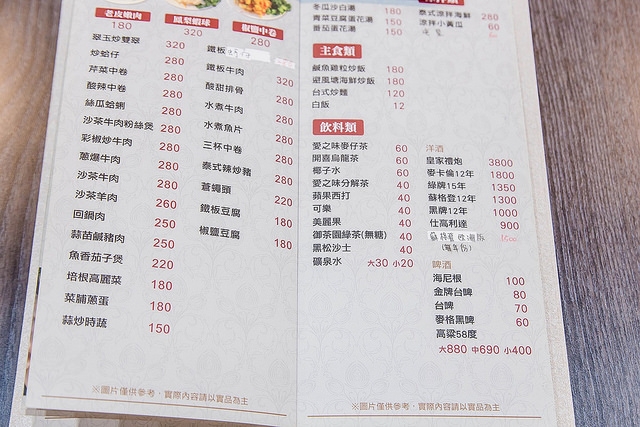 老皮嫩肉 鳳梨蝦球 椒鹽中卷
180 320 280
翠玉炒雙翠 320
炒蛤仔 280
芹菜中卷 280
酸辣中卷 280
絲瓜蛤蜊 280
沙茶牛肉粉絲煲 280
彩椒炒牛肉 280
蔥爆牛肉 280
沙茶牛肉 280
沙茶羊肉 260
回鍋肉 250
蒜苗鹹豬肉 250
魚香茄子煲 220
培根高麗菜 180
菜脯蔥蛋 180
蒜炒時蔬 150
鐵板
鐵板牛肉 320
酸甜排骨 280
水煮牛肉 280
水煮魚片 280
三杯中卷 280
泰式辣炒豬 280
蒼蠅頭 220
鐵板豆腐 180
椒鹽豆腐 180
※圖片僅供參考，實際內容請以實品為主
冬瓜沙白湯 180
青菜豆腐蛋花湯 150
番茄蛋花湯 150
泰式涼拌海鮮 280
涼拌小黃瓜 60
主食類
鹹魚雞粒炒飯 180
避風塘海鮮炒飯 180
台式炒麵 120
白飯 12
飲料類
愛之味麥仔茶 60
開喜烏龍茶 60
椰子水 60
愛之味分解茶 40
蘋果西打 40
可樂 40
美麗果 40
御茶園綠茶(無糖) 40
黑松沙士 40
礦泉水 大30 小20
洋酒
皇家禮炮 3800
麥卡倫12年 1800
綠牌15年 1350
蘇格登12年 1300
黑牌12年 1000
仕高利達 900
啤酒
海尼根 100
金牌台啤 80
台啤 70
麥格黑啤 60
高粱58度
大880 中690 小400
※圖片僅供參考，實際內容請以實品為主